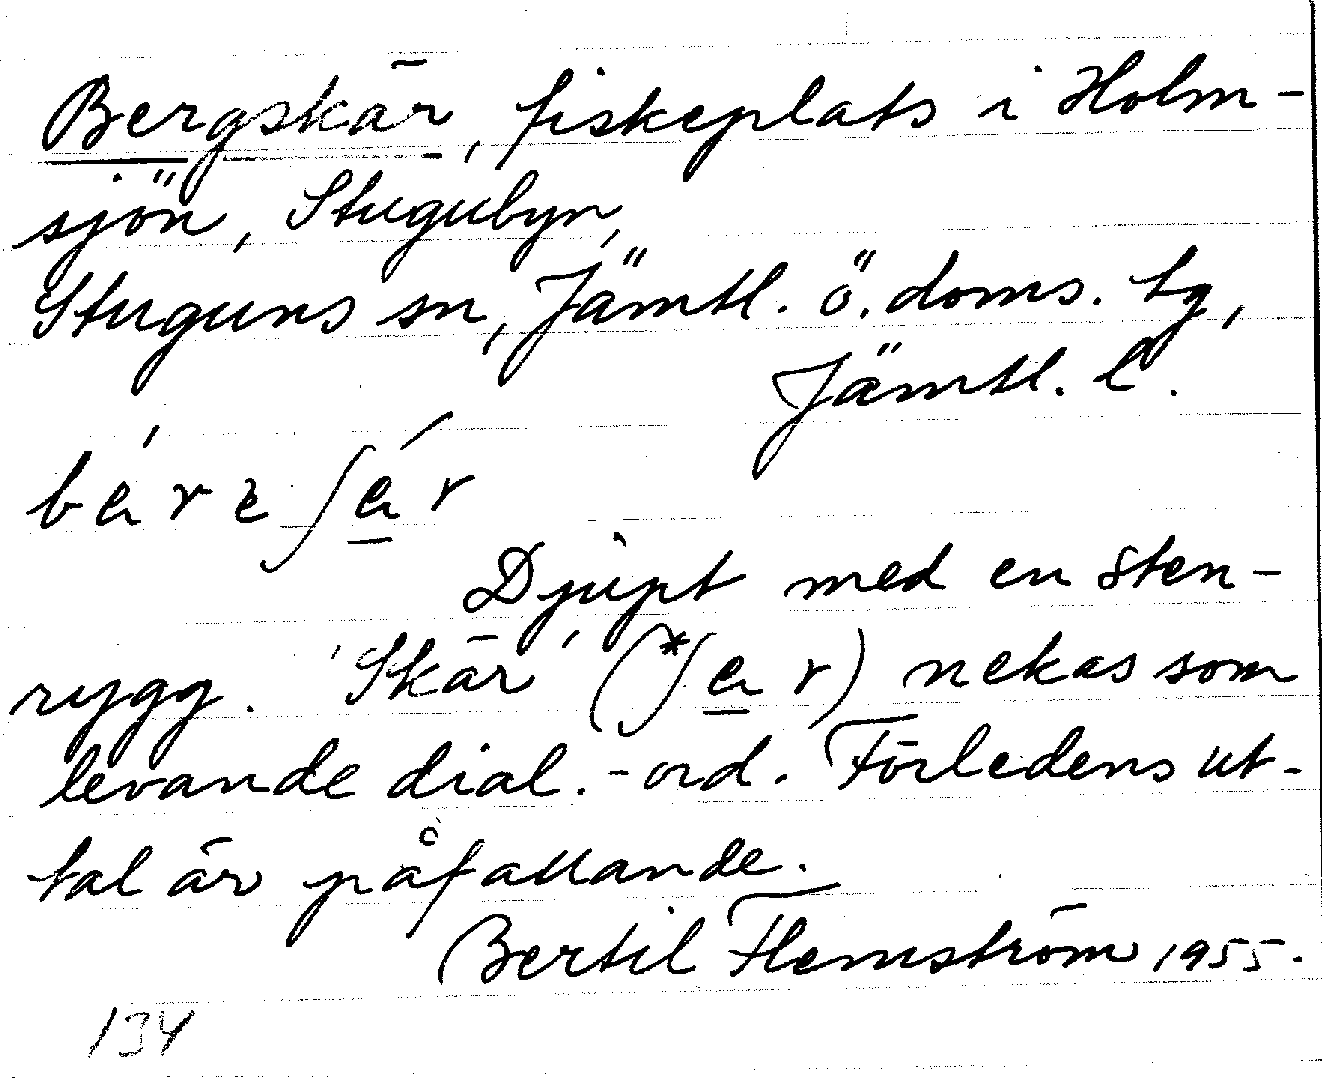 Bergskär, fiskeplats i Holm-
sjön, Stugubyn,
Stuguns sn, Jämtl. ö. doms. tg,
Jämtl. l.
Djupt med en sten-
rygg. 'Skär' (*ʃa̱r) nekas som
levande dial.-ord. Förledens ut-
tal är påfallande.
Bertil Flemström 1955.
134